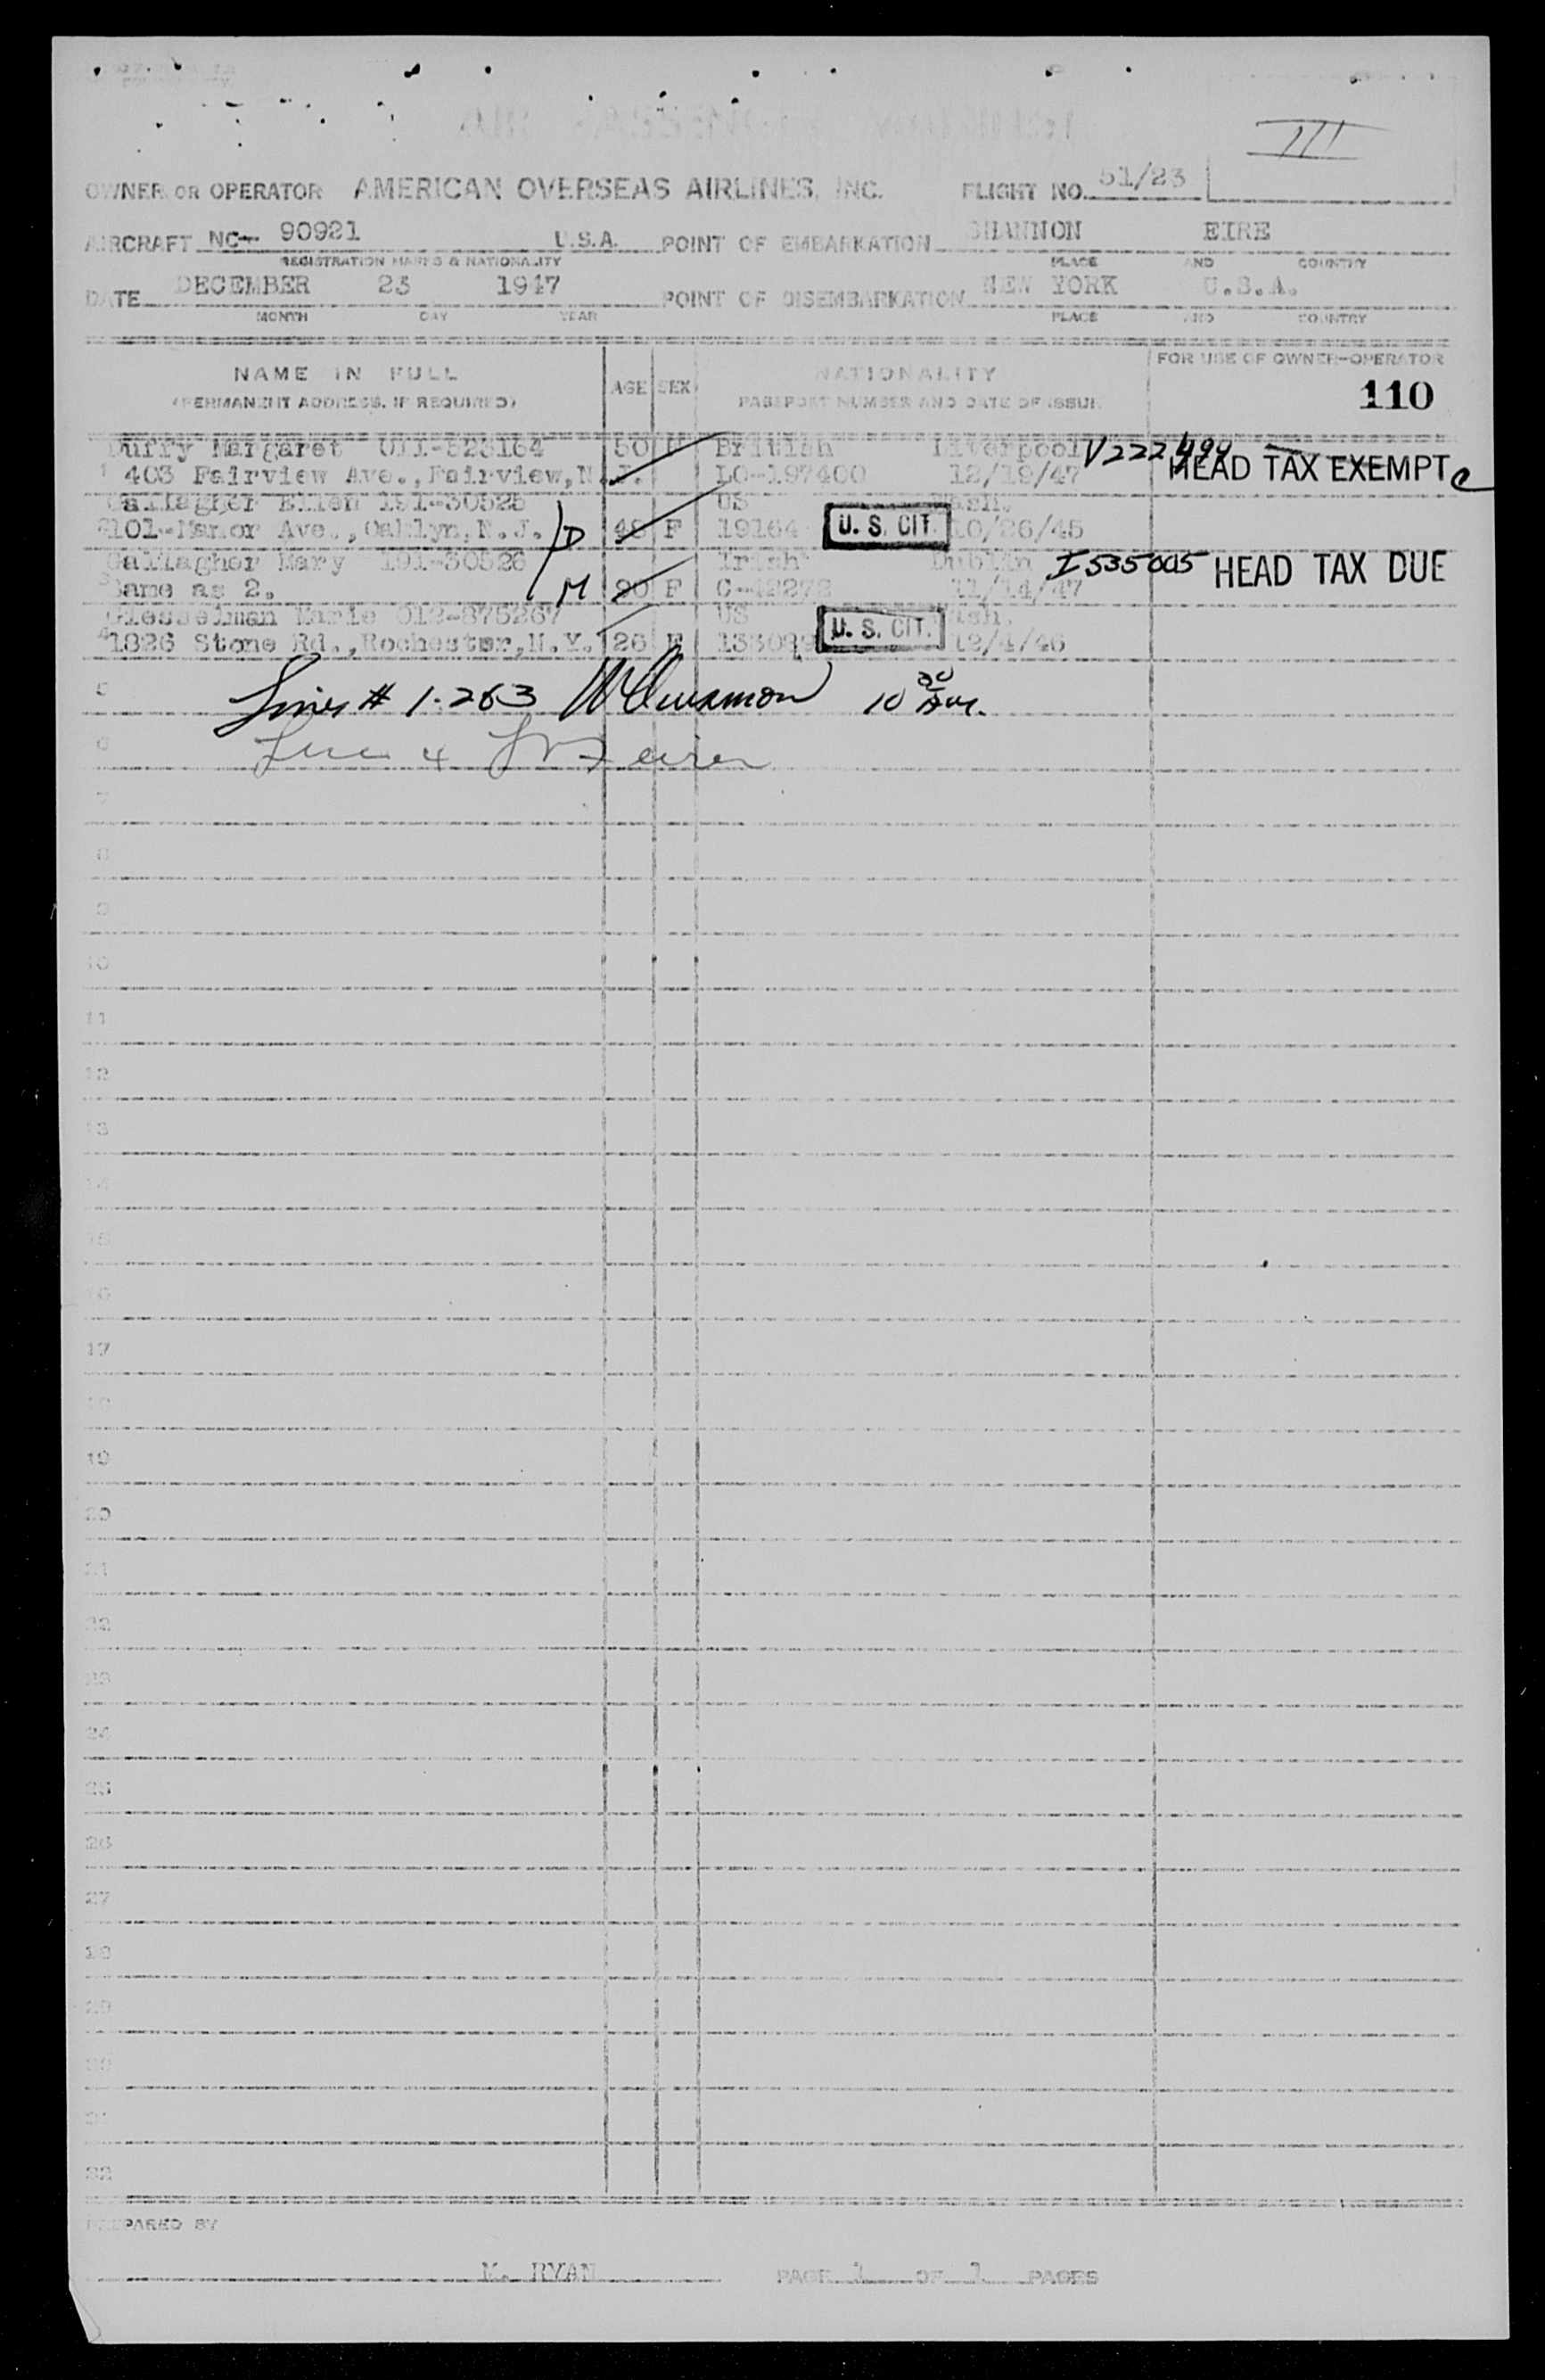 III
OWNER OR OPERATOR AMERICAN OVERSEAS AIRLINES, INC. FLIGHT NO. 51/23
AIRCRAFT NC- 90921 U.S.A. POINT OF EMBARKATION SHANNON EIRE
REGISTRATION MARKS & NATIONALITY PLACE AND COUNTRY
DATE DECEMBER 23 1947 POINT OF DISEMBARKATION NEW YORK U.S.A.
MONTH DAY YEAR PLACE AND COUNTRY
NAME IN FULL AGE SEX NATIONALITY FOR USE OF OWNER-OPERATOR
(PERMANENT ADDRESS, IF REQUIRED) PASSPORT NUMBER AND DATE OF ISSUE 110
Duffy Margaret 011-523164 50 F British Liverpool V222490
1 403 Fairview Ave., Fairview, N.J. LO-197400 12/19/47 HEAD TAX EXEMPT
Gallagher Ellen 191-30528 US Wash.
2 101-Manor Ave., Oaklyn, N.J. D 48 F 19164 U. S. CIT. 10/26/45
Gallagher Mary 191-30526 Irish Dublin I535005 HEAD TAX DUE
3 Same as 2. M 80 F C-42272 11/14/47
Giesselman Marie 012-875267 US Wash.
4 1826 Stone Rd., Rochester, N.Y. 26 F 133099 U. S. CIT. 12/4/46
5 Lines # 1-2&3 10 30 am.
6 Line 4
7
8
9
10
11
12
13
14
15
16
17
18
19
20
21
22
23
24
25
26
27
28
29
30
31
32
PREPARED BY
M. RYAN PAGE 1 OF 1 PAGES